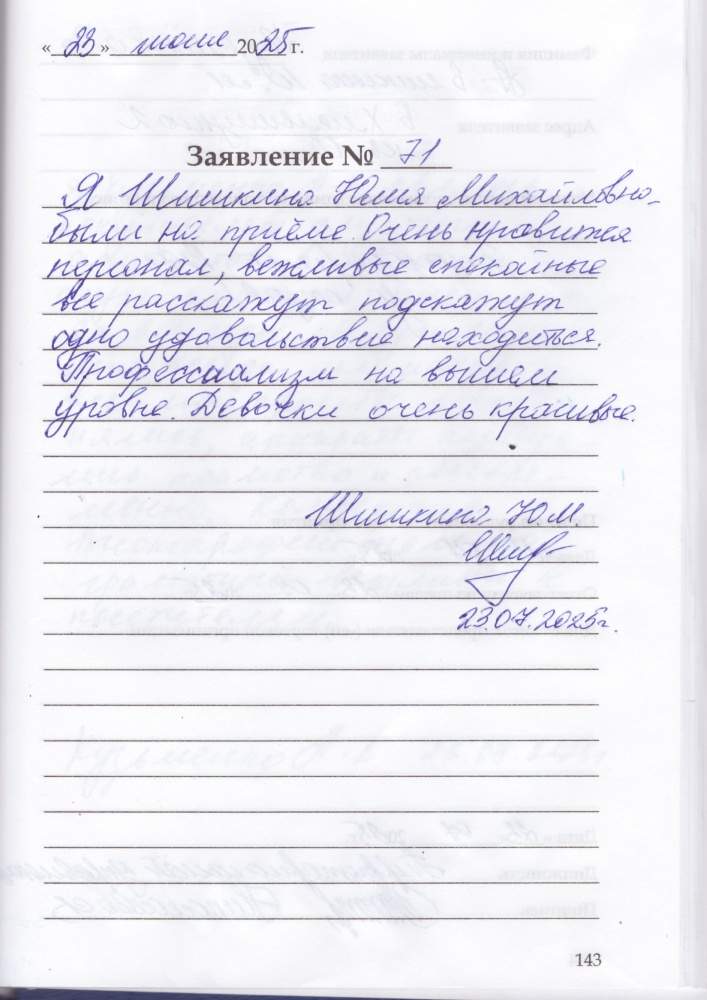 «23» июля 2025 г.
Заявление № 71
Я Шишкина Юлия Михайловна
были на приёме. Очень нравится
персонал, вежливые спокойные
все расскажут подскажут
одно удовольствие находиться.
Профессиализм на вышем
уровне. Девочки очень красивые.
Шишкина Ю.М.
23.07.2025г.
143